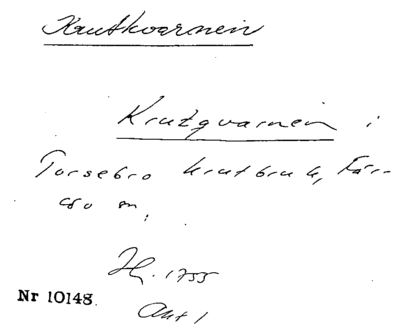 Krutkvarnen
Krutzqvarnen i
Torsebro krutbruk, Fär-
m.
1755
Nr 10148.
Akt 1